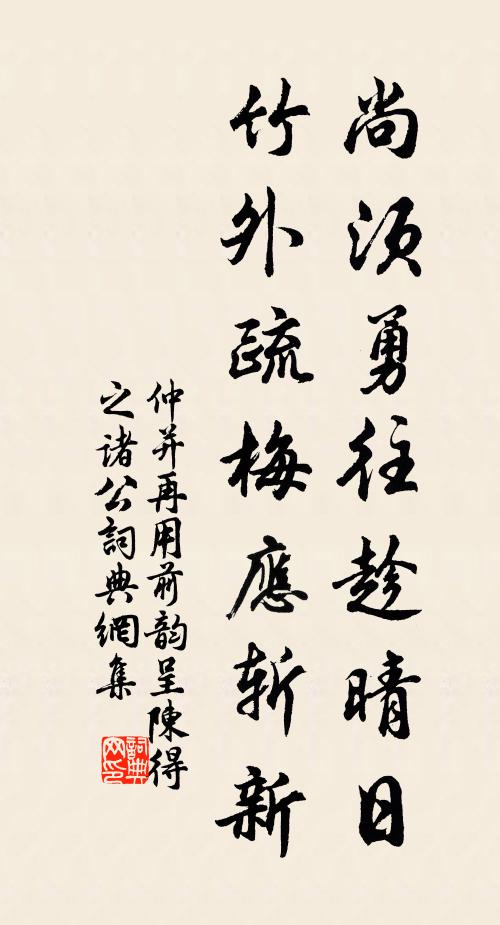 尚須勇往趁晴日
竹外疏梅應斬新
仲并再用前韵呈陳得
之諸公詞典網集
詞典网印